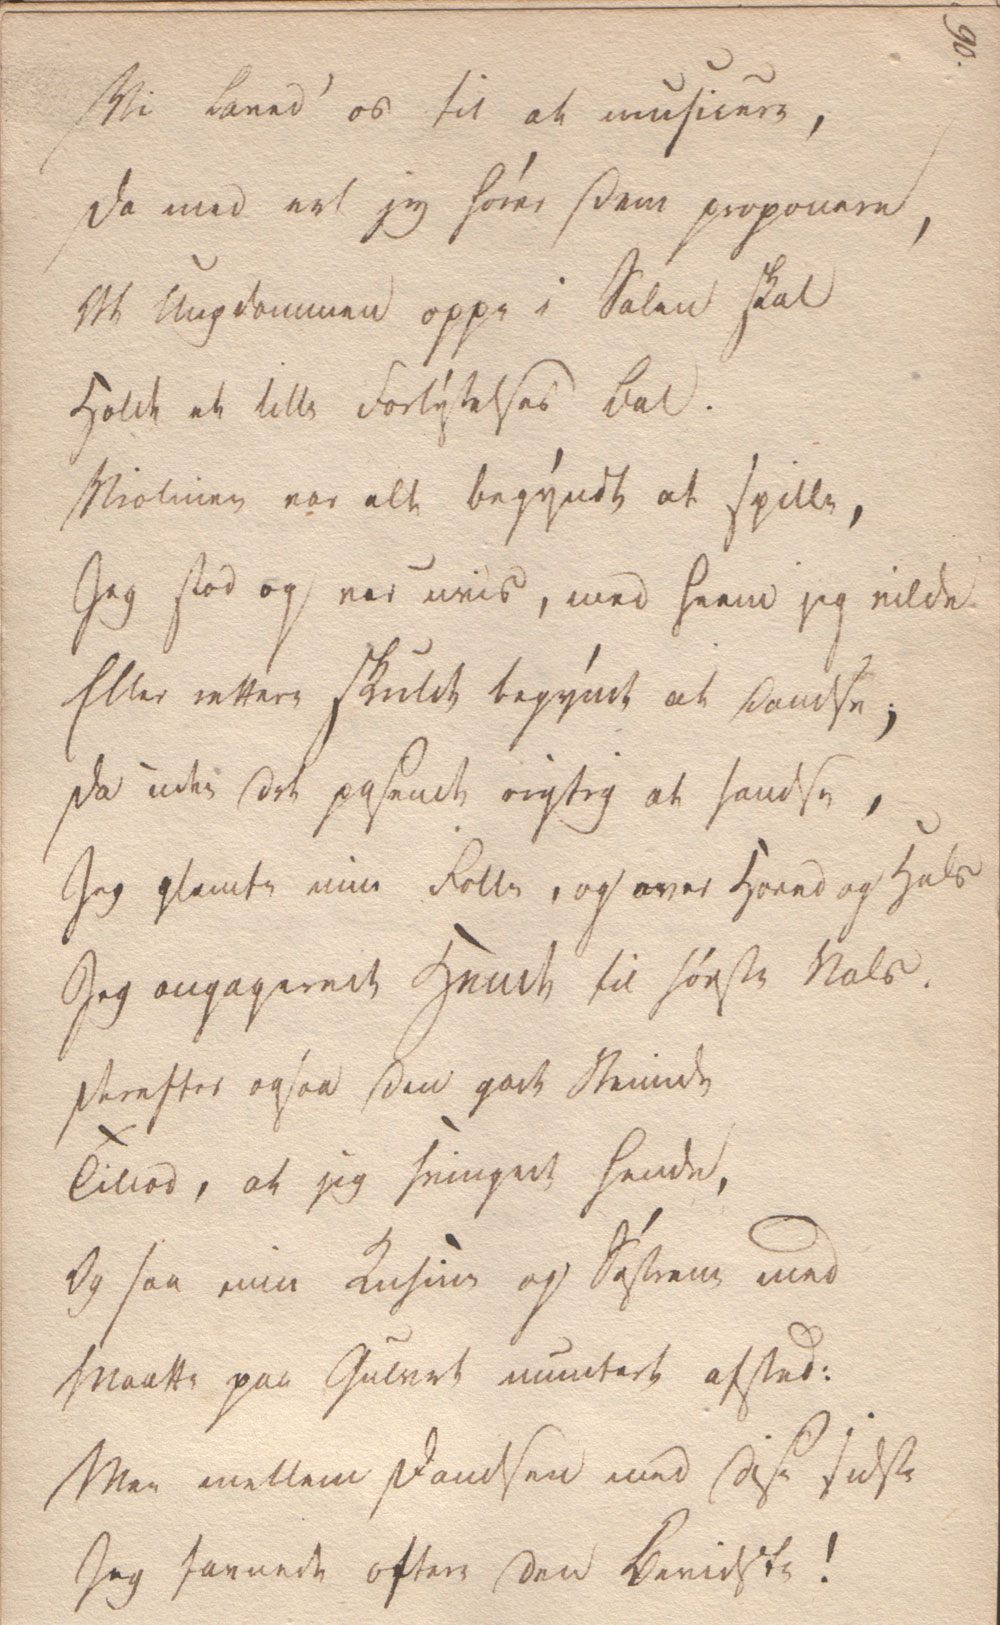 90.
Vi laved' os til at musicere,
Da med eet jeg hører Dem proponere,
At Ungdommen oppe i Salen skal
Holde et lille Forlystelses Bal.
Violinen var alt begyndt at spille,
Jeg stod og var uvis, med hvem jeg vilde
Eller rettere skulde begynde at dandse;
Da uden det pasende rigtig at sandse,
Jeg glemte min Rolle, og over Hoved og Hals
Jeg engagerede Hende til første Vals.
Derefter ogsaa den gode Veninde
Tillod, at jeg svingede hende,
Og saa min Kusine og Søstrene med
Maatte paa Gulvet muntert afsted:
Men mellem Dandsen med disse sidste
Jeg savnede oftere den Bevidste!